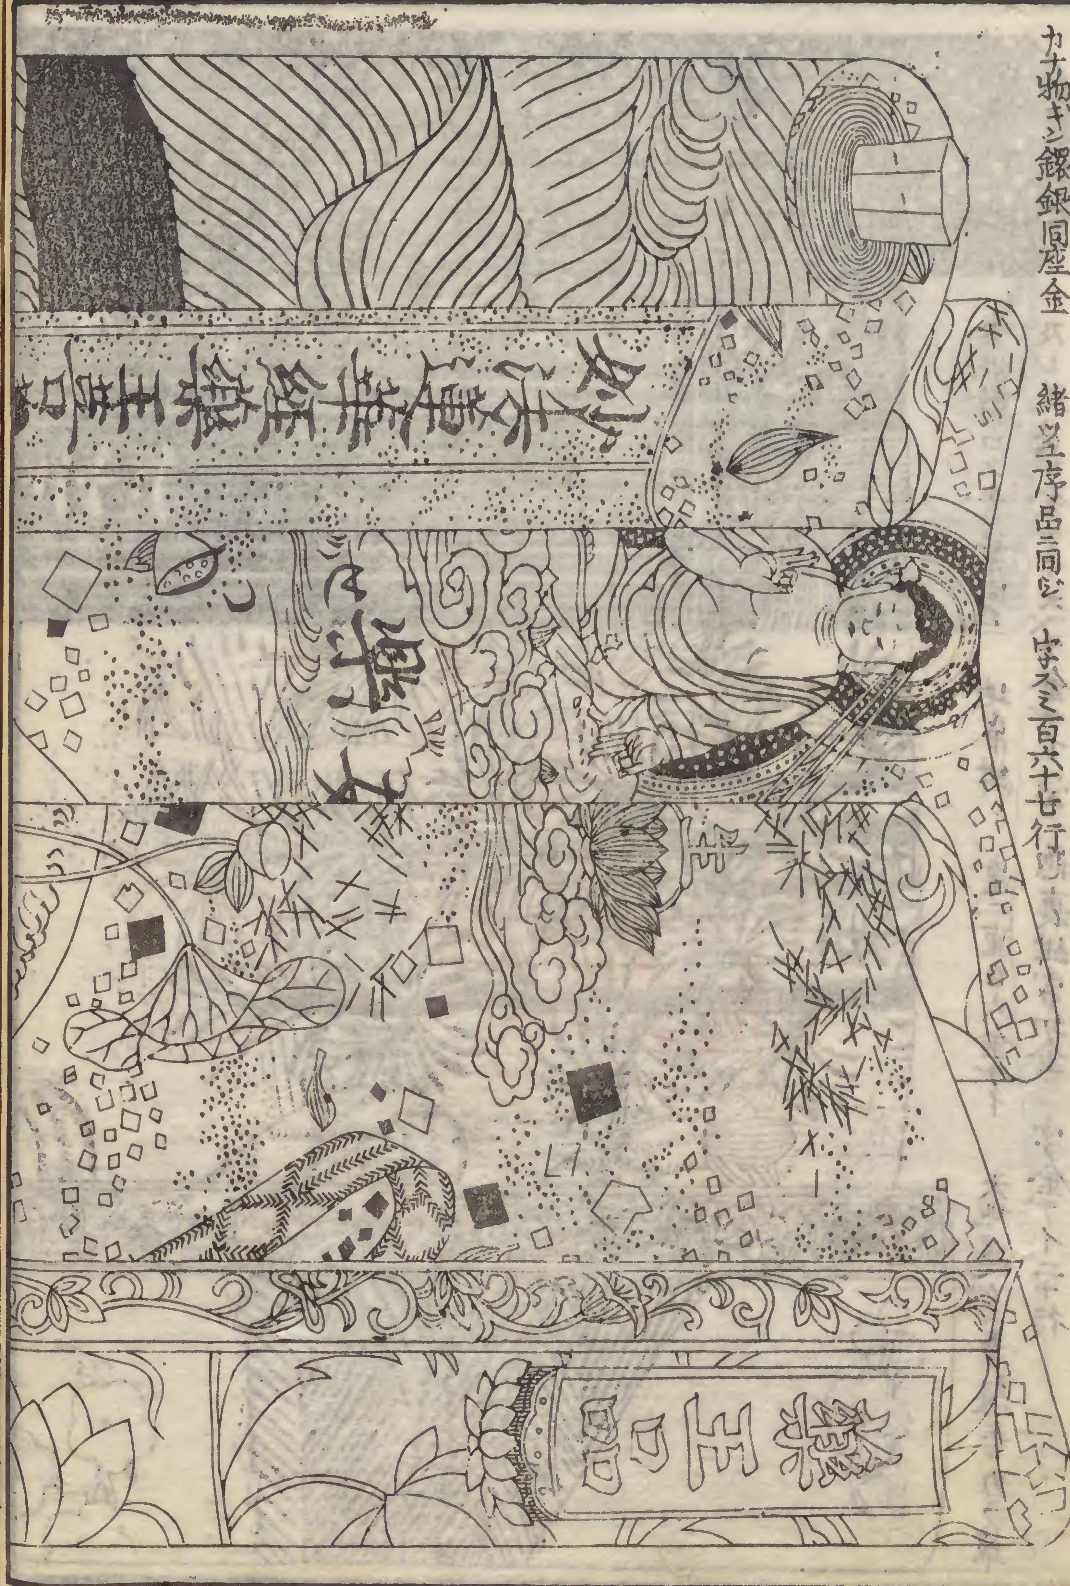 カナ物ギン鐶銀同座金　緒ツユ序品ニ同ジ　字スミ百六十七行
妙法蓮華經藥王菩
女
藥王品